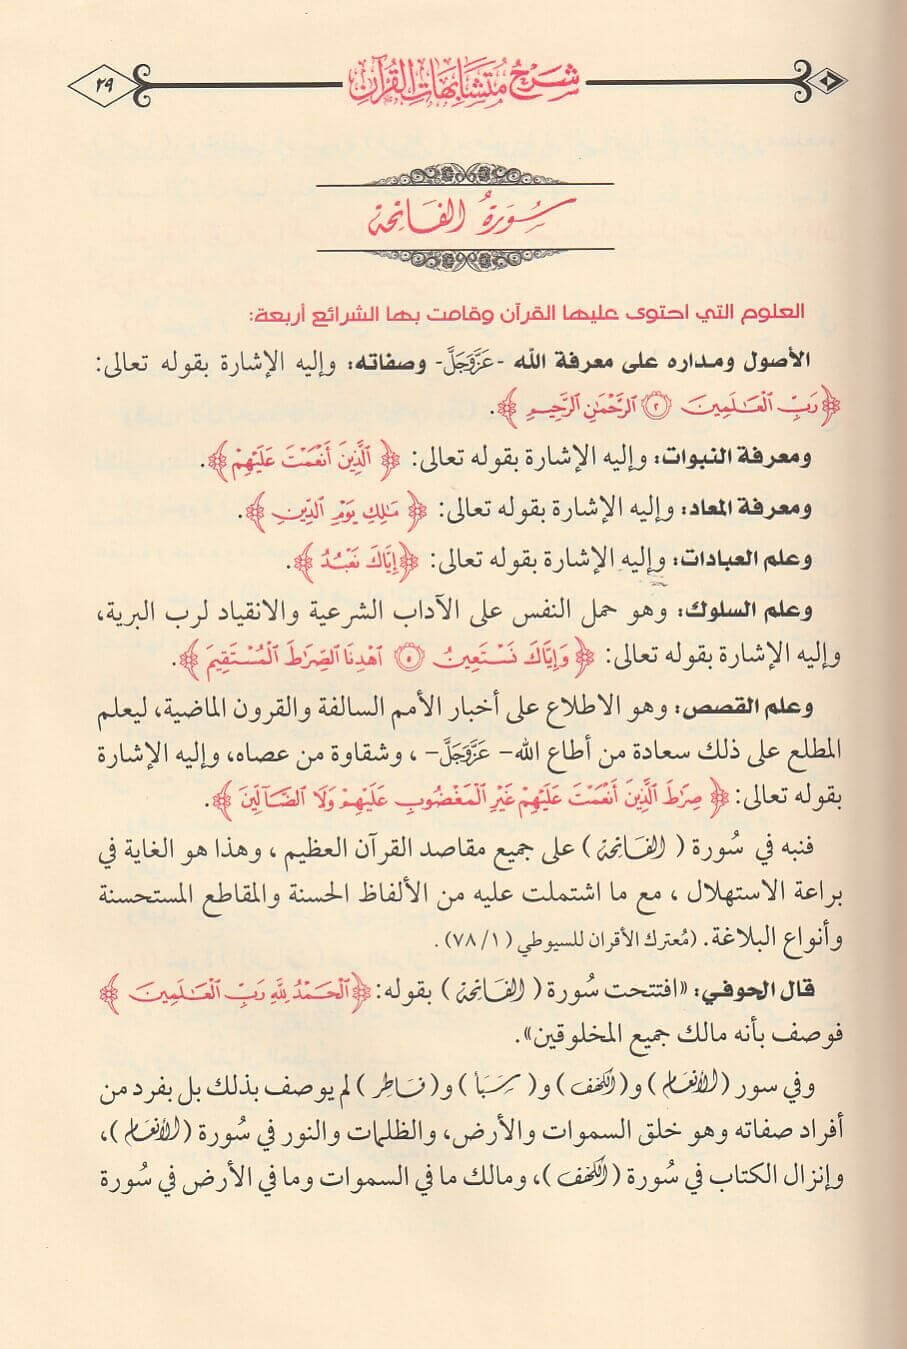 شرح متشابهات القرآن
٢٩
سورة الفاتحة
العلوم التي احتوى عليها القرآن وقامت بها الشرائع أربعة:
الأصول ومداره على معرفة الله -عَزَّوَجَلَّ- وصفاته: وإليه الإشارة بقوله تعالى:
﴿رَبِّ الْعَالَمِينَ ۝٢ الرَّحْمَٰنِ الرَّحِيمِ﴾.
ومعرفة النبوات: وإليه الإشارة بقوله تعالى: ﴿الَّذِينَ أَنْعَمْتَ عَلَيْهِمْ﴾.
ومعرفة المعاد: وإليه الإشارة بقوله تعالى: ﴿مَالِكِ يَوْمِ الدِّينِ﴾.
وعلم العبادات: وإليه الإشارة بقوله تعالى: ﴿إِيَّاكَ نَعْبُدُ﴾.
وعلم السلوك: وهو حمل النفس على الآداب الشرعية والانقياد لرب البرية،
وإليه الإشارة بقوله تعالى: ﴿وَإِيَّاكَ نَسْتَعِينُ ۝٥ اهْدِنَا الصِّرَاطَ الْمُسْتَقِيمَ﴾.
وعلم القصص: وهو الاطلاع على أخبار الأمم السالفة والقرون الماضية، ليعلم
المطلع على ذلك سعادة من أطاع الله- عَزَّوَجَلَّ- ، وشقاوة من عصاه، وإليه الإشارة
بقوله تعالى: ﴿صِرَاطَ الَّذِينَ أَنْعَمْتَ عَلَيْهِمْ غَيْرِ الْمَغْضُوبِ عَلَيْهِمْ وَلَا الضَّالِّينَ﴾.
فنبه في سُورة ( الفاتحة ) على جميع مقاصد القرآن العظيم ، وهذا هو الغاية في
براعة الاستهلال ، مع ما اشتملت عليه من الألفاظ الحسنة والمقاطع المستحسنة
وأنواع البلاغة. (مُعترك الأقران للسيوطي ( ١/ ٧٨) .
قال الحوفي: «افتتحت سُورة ( الفاتحة ) بقوله: ﴿الْحَمْدُ لِلَّهِ رَبِّ الْعَالَمِينَ﴾
فوصف بأنه مالك جميع المخلوقين».
وفي سور (الأنعام) و(الكهف) و( سبأ ) و( فاطر ) لم يوصف بذلك بل بفرد من
أفراد صفاته وهو خلق السموات والأرض، والظلمات والنور في سُورة (الأنعام)،
وإنزال الكتاب في سُورة (الكهف)، ومالك ما في السموات وما في الأرض في سُورة